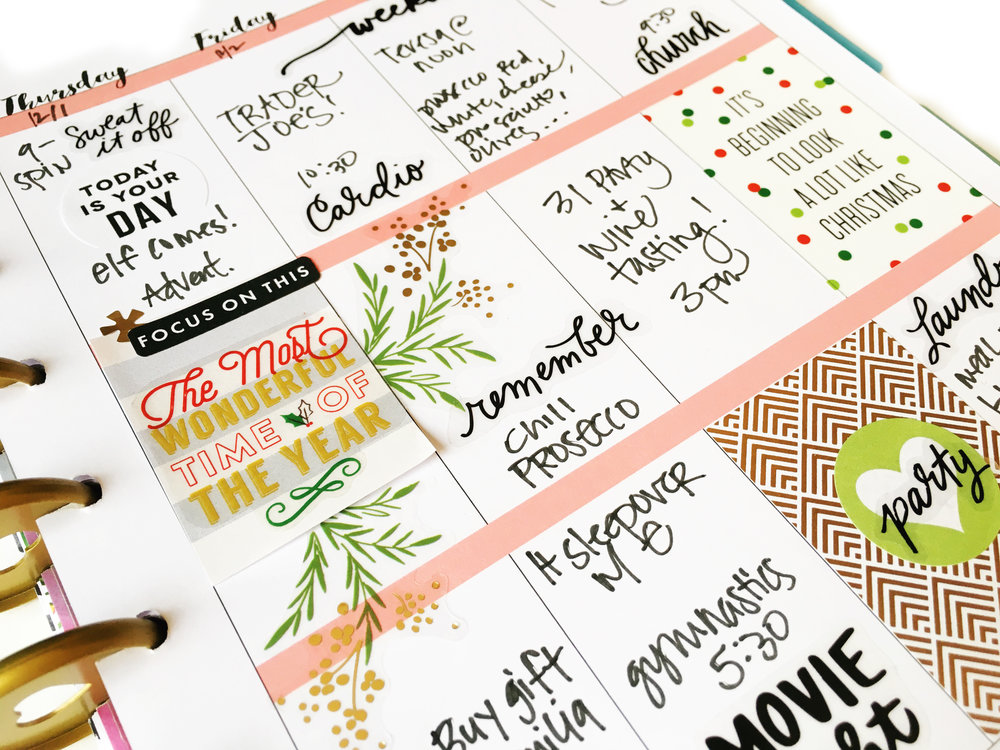 Thursday
12/1
9- Sweat
it off
SPIN
TODAY
IS YOUR
DAY
elf comes!
Advent.
FOCUS ON THIS
The Most
WONDERFUL
TIME OF
THE YEAR
Friday
12/2
TRADER
JOE'S!
10:30
Cardio
Teresa @
noon
prosecco red
white, cheese,
prosciutto,
olives...
remember
CHILL
PROSECCO
Buy gift
9:30
church
31 PARTY
+
wine
tasting!
3pm
H sleepover
gymnastics
5:30
MOVIE
IT'S
BEGINNING
TO LOOK
A LOT LIKE
CHRISTMAS
party